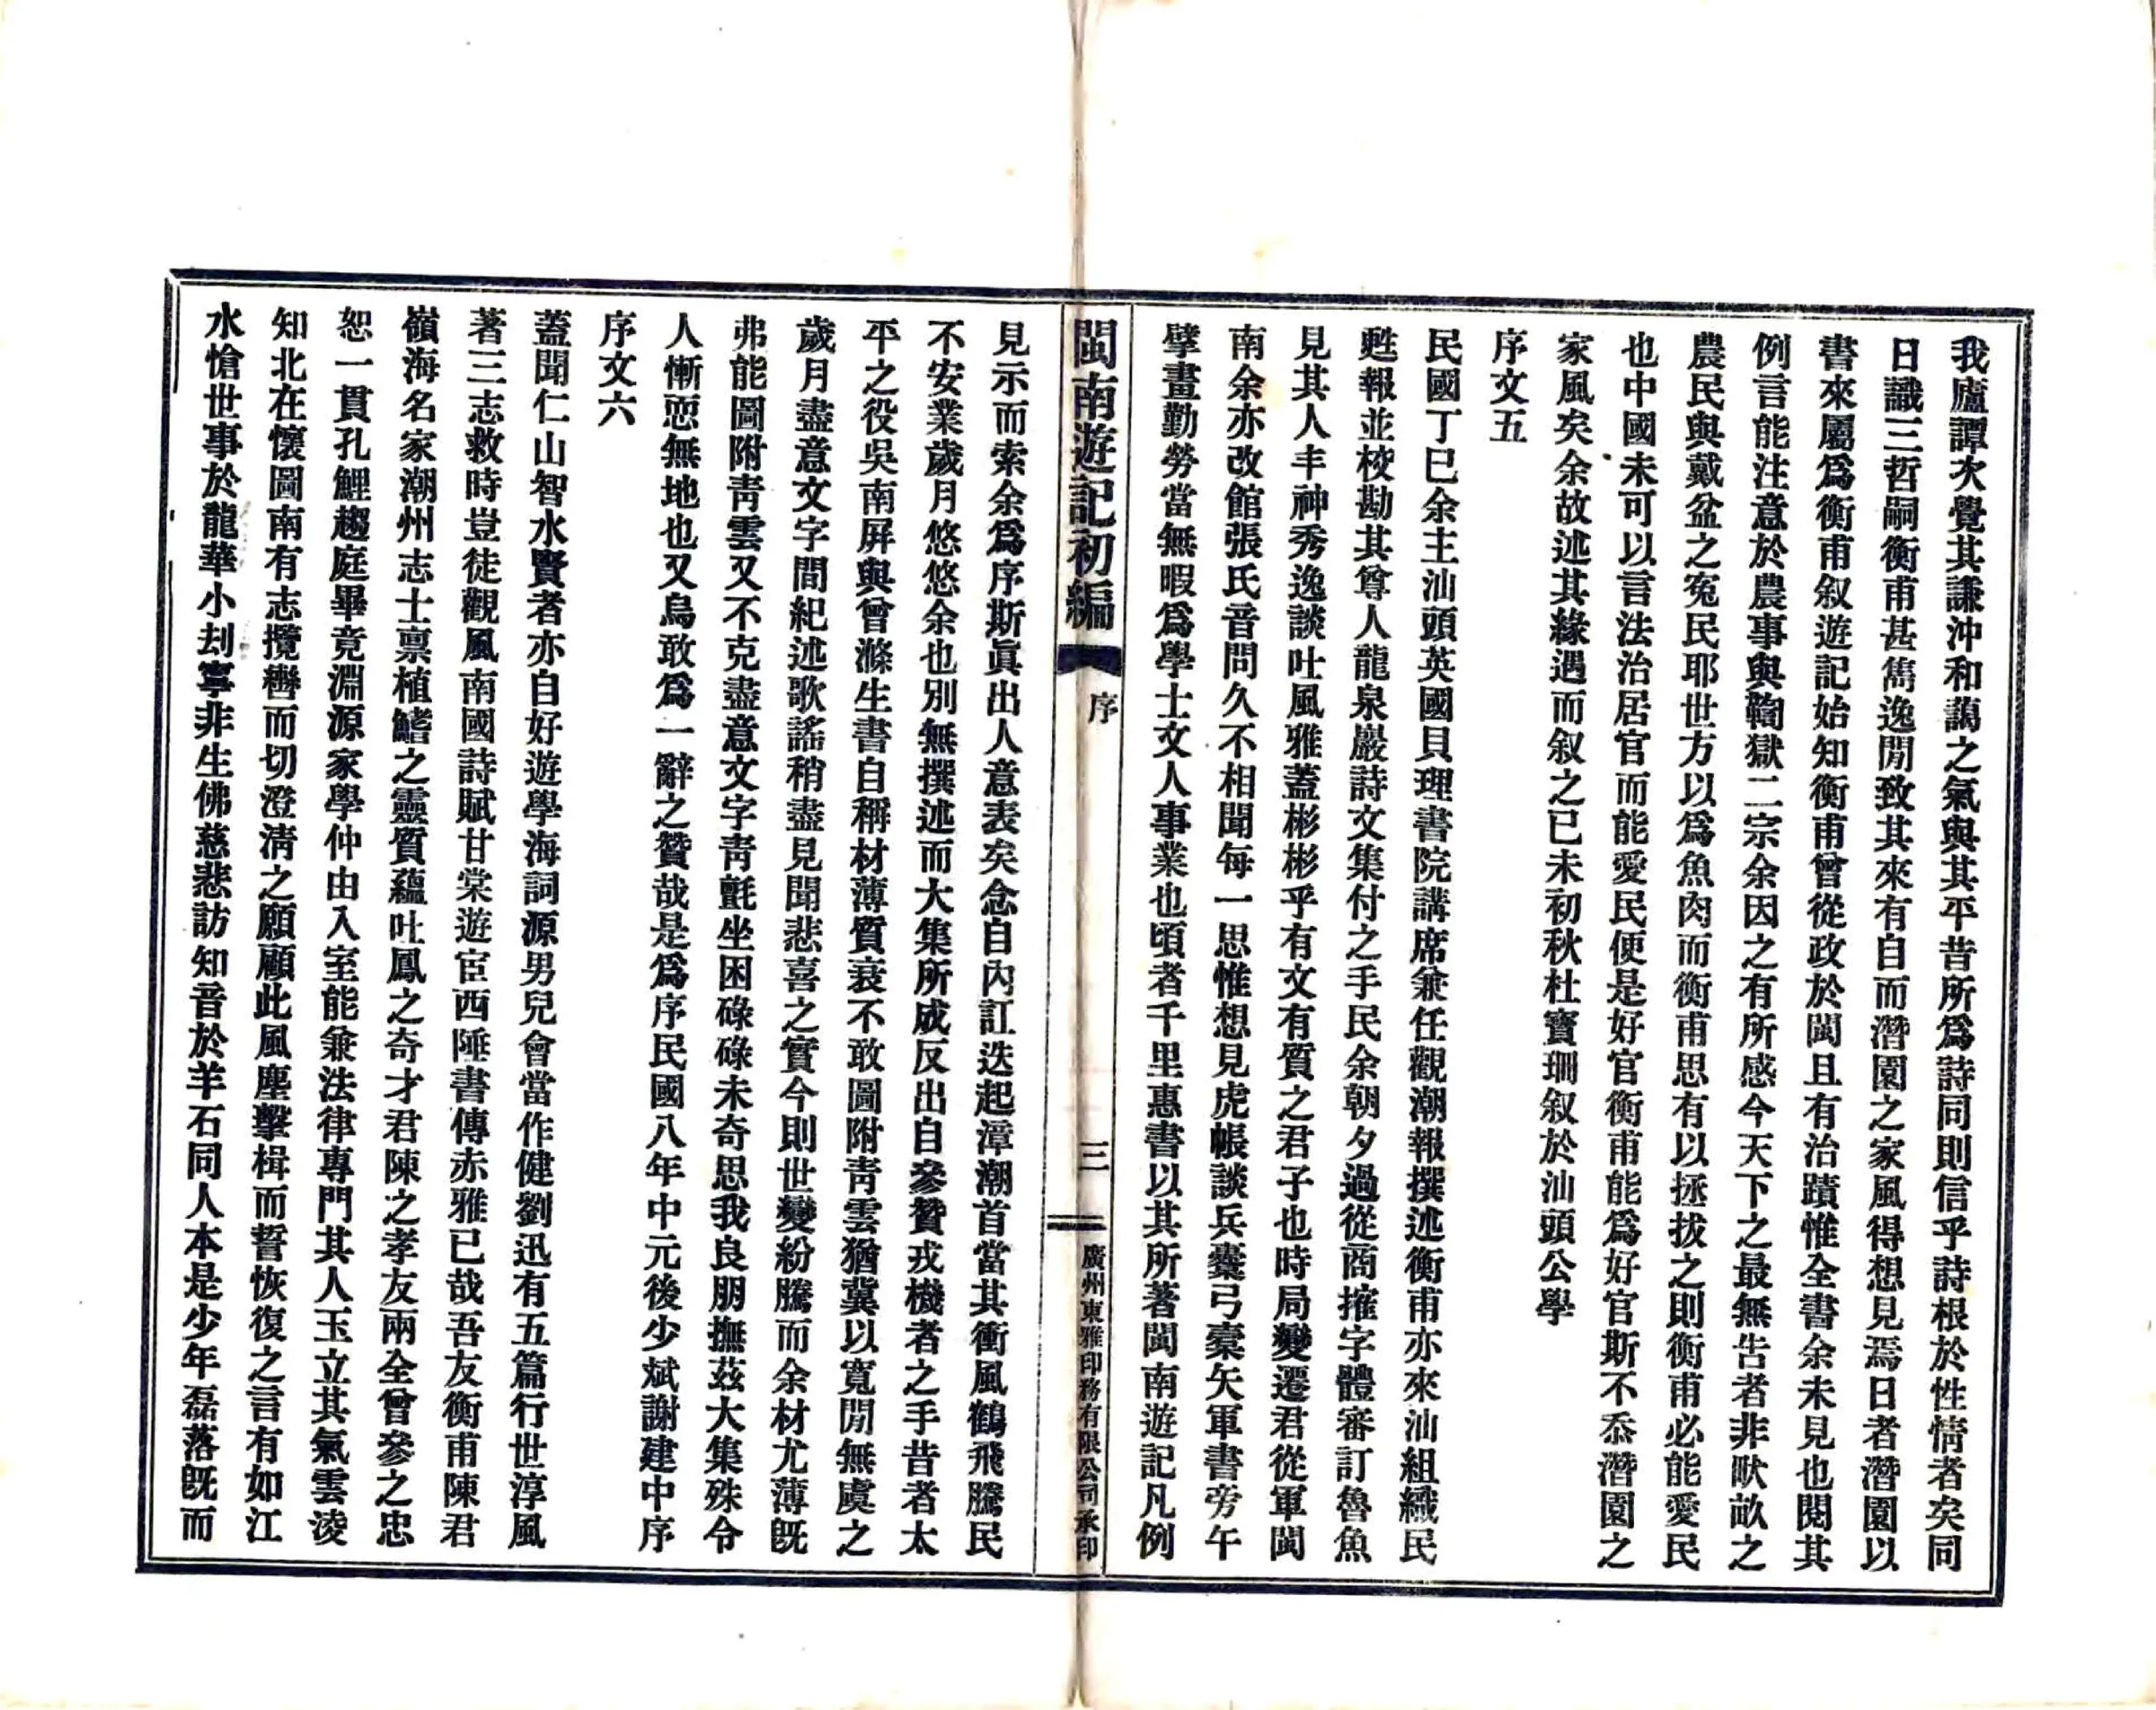 我廬譚次覺其謙沖和藹之氣與其平昔所爲詩同則信乎詩根於性情者矣同
日識三哲嗣衡甫甚雋逸閒致其來有自而潛園之家風得想見焉日者潛園以
書來屬爲衡甫叙遊記始知衡甫曾從政於閩且有治蹟惟全書余未見也閱其
例言能注意於農事與鞫獄二宗余因之有所感今天下之最無告者非畎畝之
農民與戴盆之冤民耶世方以爲魚肉而衡甫思有以拯拔之則衡甫必能愛民
也中國未可以言法治居官而能愛民便是好官衡甫能爲好官斯不忝潛園之
家風矣余故述其緣遇而叙之已未初秋杜寶珊叙於汕頭公學
序文五
民國丁巳余主汕頭英國貝理書院講席兼任觀潮報撰述衡甫亦來汕組織民
甦報並校勘其尊人龍泉巖詩文集付之手民余朝夕過從商搉字體審訂魯魚
見其人丰神秀逸談吐風雅蓋彬彬乎有文有質之君子也時局變遷君從軍閩
南余亦改館張氏音問久不相聞每一思惟想見虎帳談兵櫜弓櫜矢軍書旁午
擘畫勤勞當無暇爲學士文人事業也頃者千里惠書以其所著閩南遊記凡例
閩南遊記初編
序
三
廣州東雅印務有限公司承印
見示而索余爲序斯眞出人意表矣念自內訌迭起漳潮首當其衝風鶴飛騰民
不安業歲月悠悠余也別無撰述而大集所成反出自參贊戎機者之手昔者太
平之役吳南屛與曾滌生書自稱材薄質衰不敢圖附靑雲猶冀以寬閒無虞之
歲月盡意文字間紀述歌謠稍盡見聞悲喜之實今則世變紛騰而余材尤薄旣
弗能圖附靑雲又不克盡意文字靑氈坐困碌碌未奇思我良朋撫茲大集殊令
人慚恧無地也又烏敢爲一辭之贊哉是爲序民國八年中元後少斌謝建中序
序文六
蓋聞仁山智水賢者亦自好遊學海詞源男兒會當作健劉迅有五篇行世淳風
著三志救時豈徒觀風南國詩賦甘棠遊宦西陲書傳赤雅已哉吾友衡甫陳君
嶺海名家潮州志士禀植鰭之靈質蘊吐鳳之奇才君陳之孝友兩全曾參之忠
恕一貫孔鯉趨庭畢竟淵源家學仲由入室能兼法律專門其人玉立其氣雲淩
知北在懷圖南有志攬轡而切澄淸之願顧此風塵擊楫而誓恢復之言有如江
水愴世事於龍華小刦寧非生佛慈悲訪知音於羊石同人本是少年磊落旣而